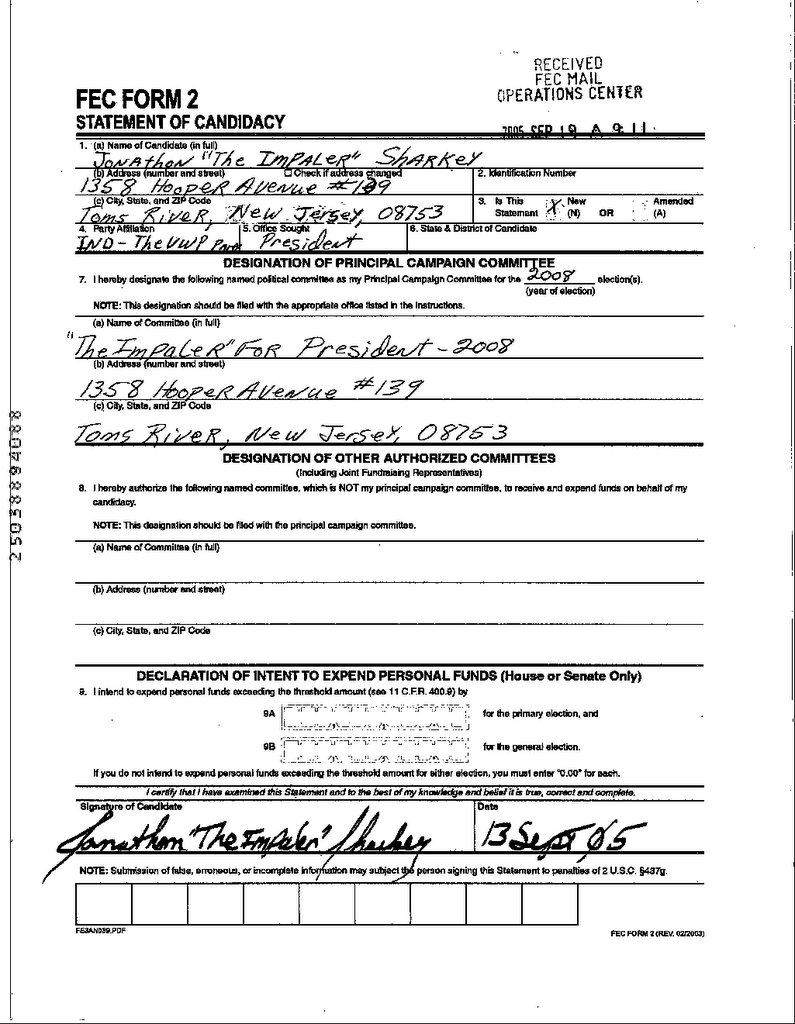 RECEIVED
FEC MAIL
OPERATIONS CENTER
2005 SEP 19 A 9: 11
FEC FORM 2
STATEMENT OF CANDIDACY
1. (a) Name of Candidate (in full)
Jonathon "The Impaler" Sharkey
(b) Address (number and street) Check if address changed
1358 Hooper Avenue #139
2. Identification Number
(c) City, State, and ZIP Code
Toms River, New Jersey, 08753
3. Is This Statement X New (N) OR Amended (A)
4. Party Affiliation
IND - The VWP Party
5. Office Sought
President
6. State & District of Candidate
DESIGNATION OF PRINCIPAL CAMPAIGN COMMITTEE
7. I hereby designate the following named political committee as my Principal Campaign Committee for the 2008 election(s).
(year of election)
NOTE: This designation should be filed with the appropriate office listed in the instructions.
(a) Name of Committee (in full)
"The Impaler" For President - 2008
(b) Address (number and street)
1358 Hooper Avenue #139
(c) City, State, and ZIP Code
Toms River, New Jersey, 08753
DESIGNATION OF OTHER AUTHORIZED COMMITTEES
(Including Joint Fundraising Representatives)
8. I hereby authorize the following named committee, which is NOT my principal campaign committee, to receive and expend funds on behalf of my
candidacy.
NOTE: This designation should be filed with the principal campaign committee.
(a) Name of Committee (in full)
(b) Address (number and street)
(c) City, State, and ZIP Code
DECLARATION OF INTENT TO EXPEND PERSONAL FUNDS (House or Senate Only)
9. I intend to expend personal funds exceeding the threshold amount (see 11 C.F.R. 400.9) by
9A for the primary election, and
9B for the general election.
If you do not intend to expend personal funds exceeding the threshold amount for either election, you must enter "0.00" for each.
I certify that I have examined this Statement and to the best of my knowledge and belief it is true, correct and complete.
Signature of Candidate
Jonathon "The Impaler" Sharkey
Date
13 Sept 05
NOTE: Submission of false, erroneous, or incomplete information may subject the person signing this Statement to penalties of 2 U.S.C. §437g.
FE3AN039.PDF
FEC FORM 2 (REV. 02/2003)
25038894088